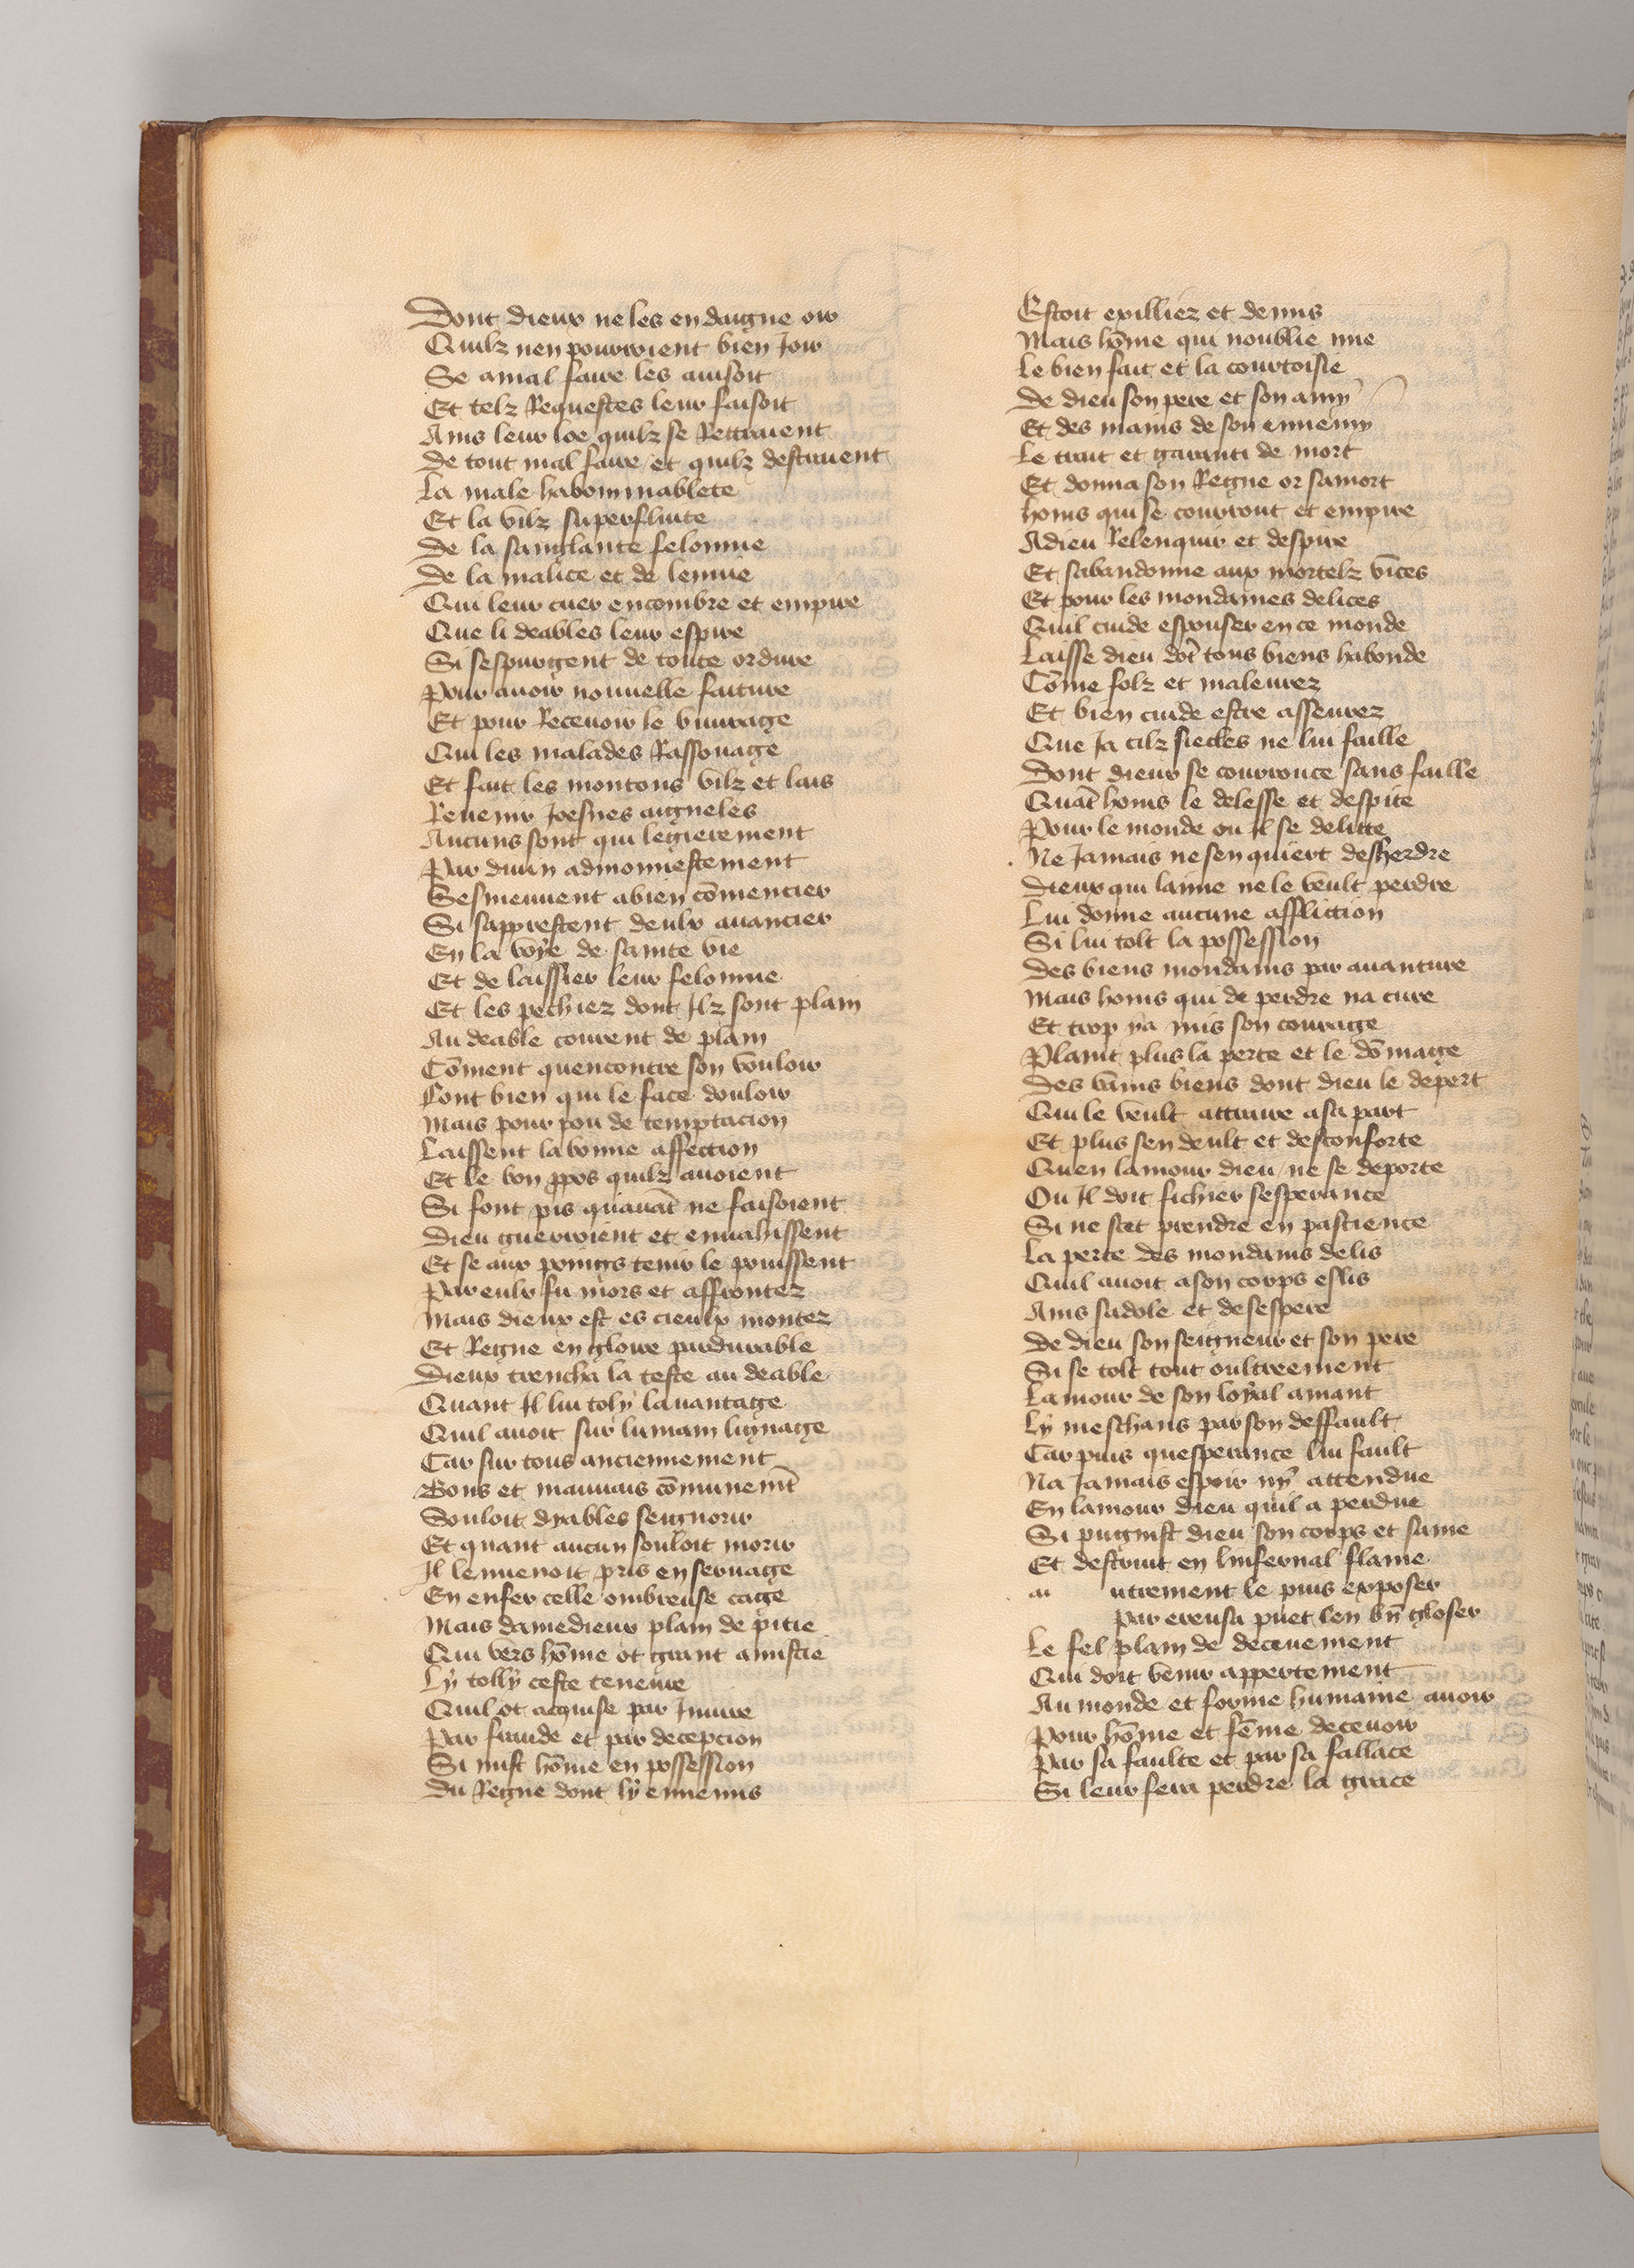 Dont dieux ne les en daigne oir
Quilz nen pourroient bien Joir
Se a mal faire les auisoit
Et telz Requestes leur faisoit
Ains leur loe quilz se Rettraient
De tout mal faire et quilz destraient
La male habominablete
Et la vilz superfluite
De la sanglante felonnie
De la malice et de lenuie
Qui leur cuer encombre et empire
Que li deables leur espire
Si sespurgent de toute ordure
Pour auoir nouuelle faiture
Et pour Receuoir le buuraige
Qui les malades Rassouage
Et fait les moutons vilz et lais
Reuenir Joesnes aigneles
Aucuns sont qui legierement
Par diuin admonnestement
Sesmeuuent a bien cōmencier
Si sapprestent deulx auancier
En la voye de sainte vie
Et de laissier leur felonnie
Et les pechiez dont Ilz sont plain
Au deable courent de plain
Cōment quencontre son vouloir
Font bien qui le face douloir
Mais pour pou de temptacion
Laissent la bonne affection
Et le bon ꝓpos quilz auoient
Si font pis quauāt ne faisoient
Dieu guerroient et enuaissent
Et se aux poings tenir le pouissent
Par eulx fu mors et affrontez
Mais dieux est es cieulx montez
Et Regne en gloire pardurable
Dieux trencha la teste au deable
Quant Il lui toly lauantage
Quil auoit sur lumain lignage
Car sur tous anciennement
Bons et mauuais cōmunemēt
Souloit dyables seignorir
Et quant aucun souloit morir
Il lenuenoit pris en seruage
En enfer celle ombreuse cage
Mais damedieux plain de pitie
Qui vers hōme ot grant amistie
Ly tolly ceste teneure
Quil ot acquise par Iniure
Par fraude et par decepcion
Si mist hōme en possession
Du Regne dont ly ennemis
Estoit exilliez et demis
Mais hōme qui noublie mie
Le bien fait et la courtoisie
De dieu son pere et son amy
Et des mains de son ennemy
Le trait et garanti de mort
Et donna son Regne or samort
Homs qui se courrout et empire
A dieu Relenquir et despire
Et sabandonne aux mortelz vices
Et pour les mondaines delices
Quil cuide espouser en ce monde
Laisse dieu dōt tous biens habonde
Cōme folz et maleurez
Et bien cuide estre asseurez
Que Ja cilz siecles ne lui faille
Dont dieux se courrouce sans faille
Quāt homs le delesse et despite
Pour le monde ou Il se delitte
Ne Jamais ne sen quiert desherdre
Dieux qui laime ne le veult perdre
Lui donne aucune affliction
Si lui tolt la possession
Des biens mondains par auanture
Mais homs qui de perdre na cure
Et trop ya mis son courage
Plaint plus la perte et le dōmage
Des vains biens dont dieu le depert
Qui le veult attraire a sa part
Et plus sen deult et desconforte
Quen lamour dieu ne se deporte
Ou Il doit fichier sesperance
Si ne scet prendre en pascience
La perte des mondains delis
Quil auoit a son corps eslis
Ains sadole et desespere
De dieu son seigneur et son pere
Si se tolt tout oultreement
Lamour de son loyal amant
Ly meschans par son deffault
Car puis quesperance lui fault
Na Jamais espoir ny attendue
En lamour dieu quil a perdue
Si pugnist dieu son corps et same
Et destruit en linfernal flame
au utrement le puis exposer
Par creusa puet len bn̄ gloser
Le fel plain de deceuement
Qui doit venir appertement
Au monde et forme humaine auoir
Pour hōme et fēme deceuoir
Par sa faulte et par sa fallace
Si leur fera perdre la grace